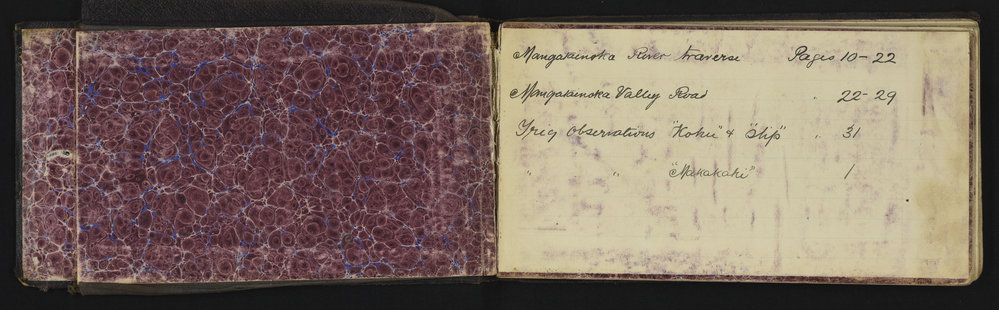 Mangatainoka River traverse Pages 10-22
Mangatainoka Valley Road " 22-29
Trig Observations "Kohu" & "Slip" " 31
" " "Makakahi" 1